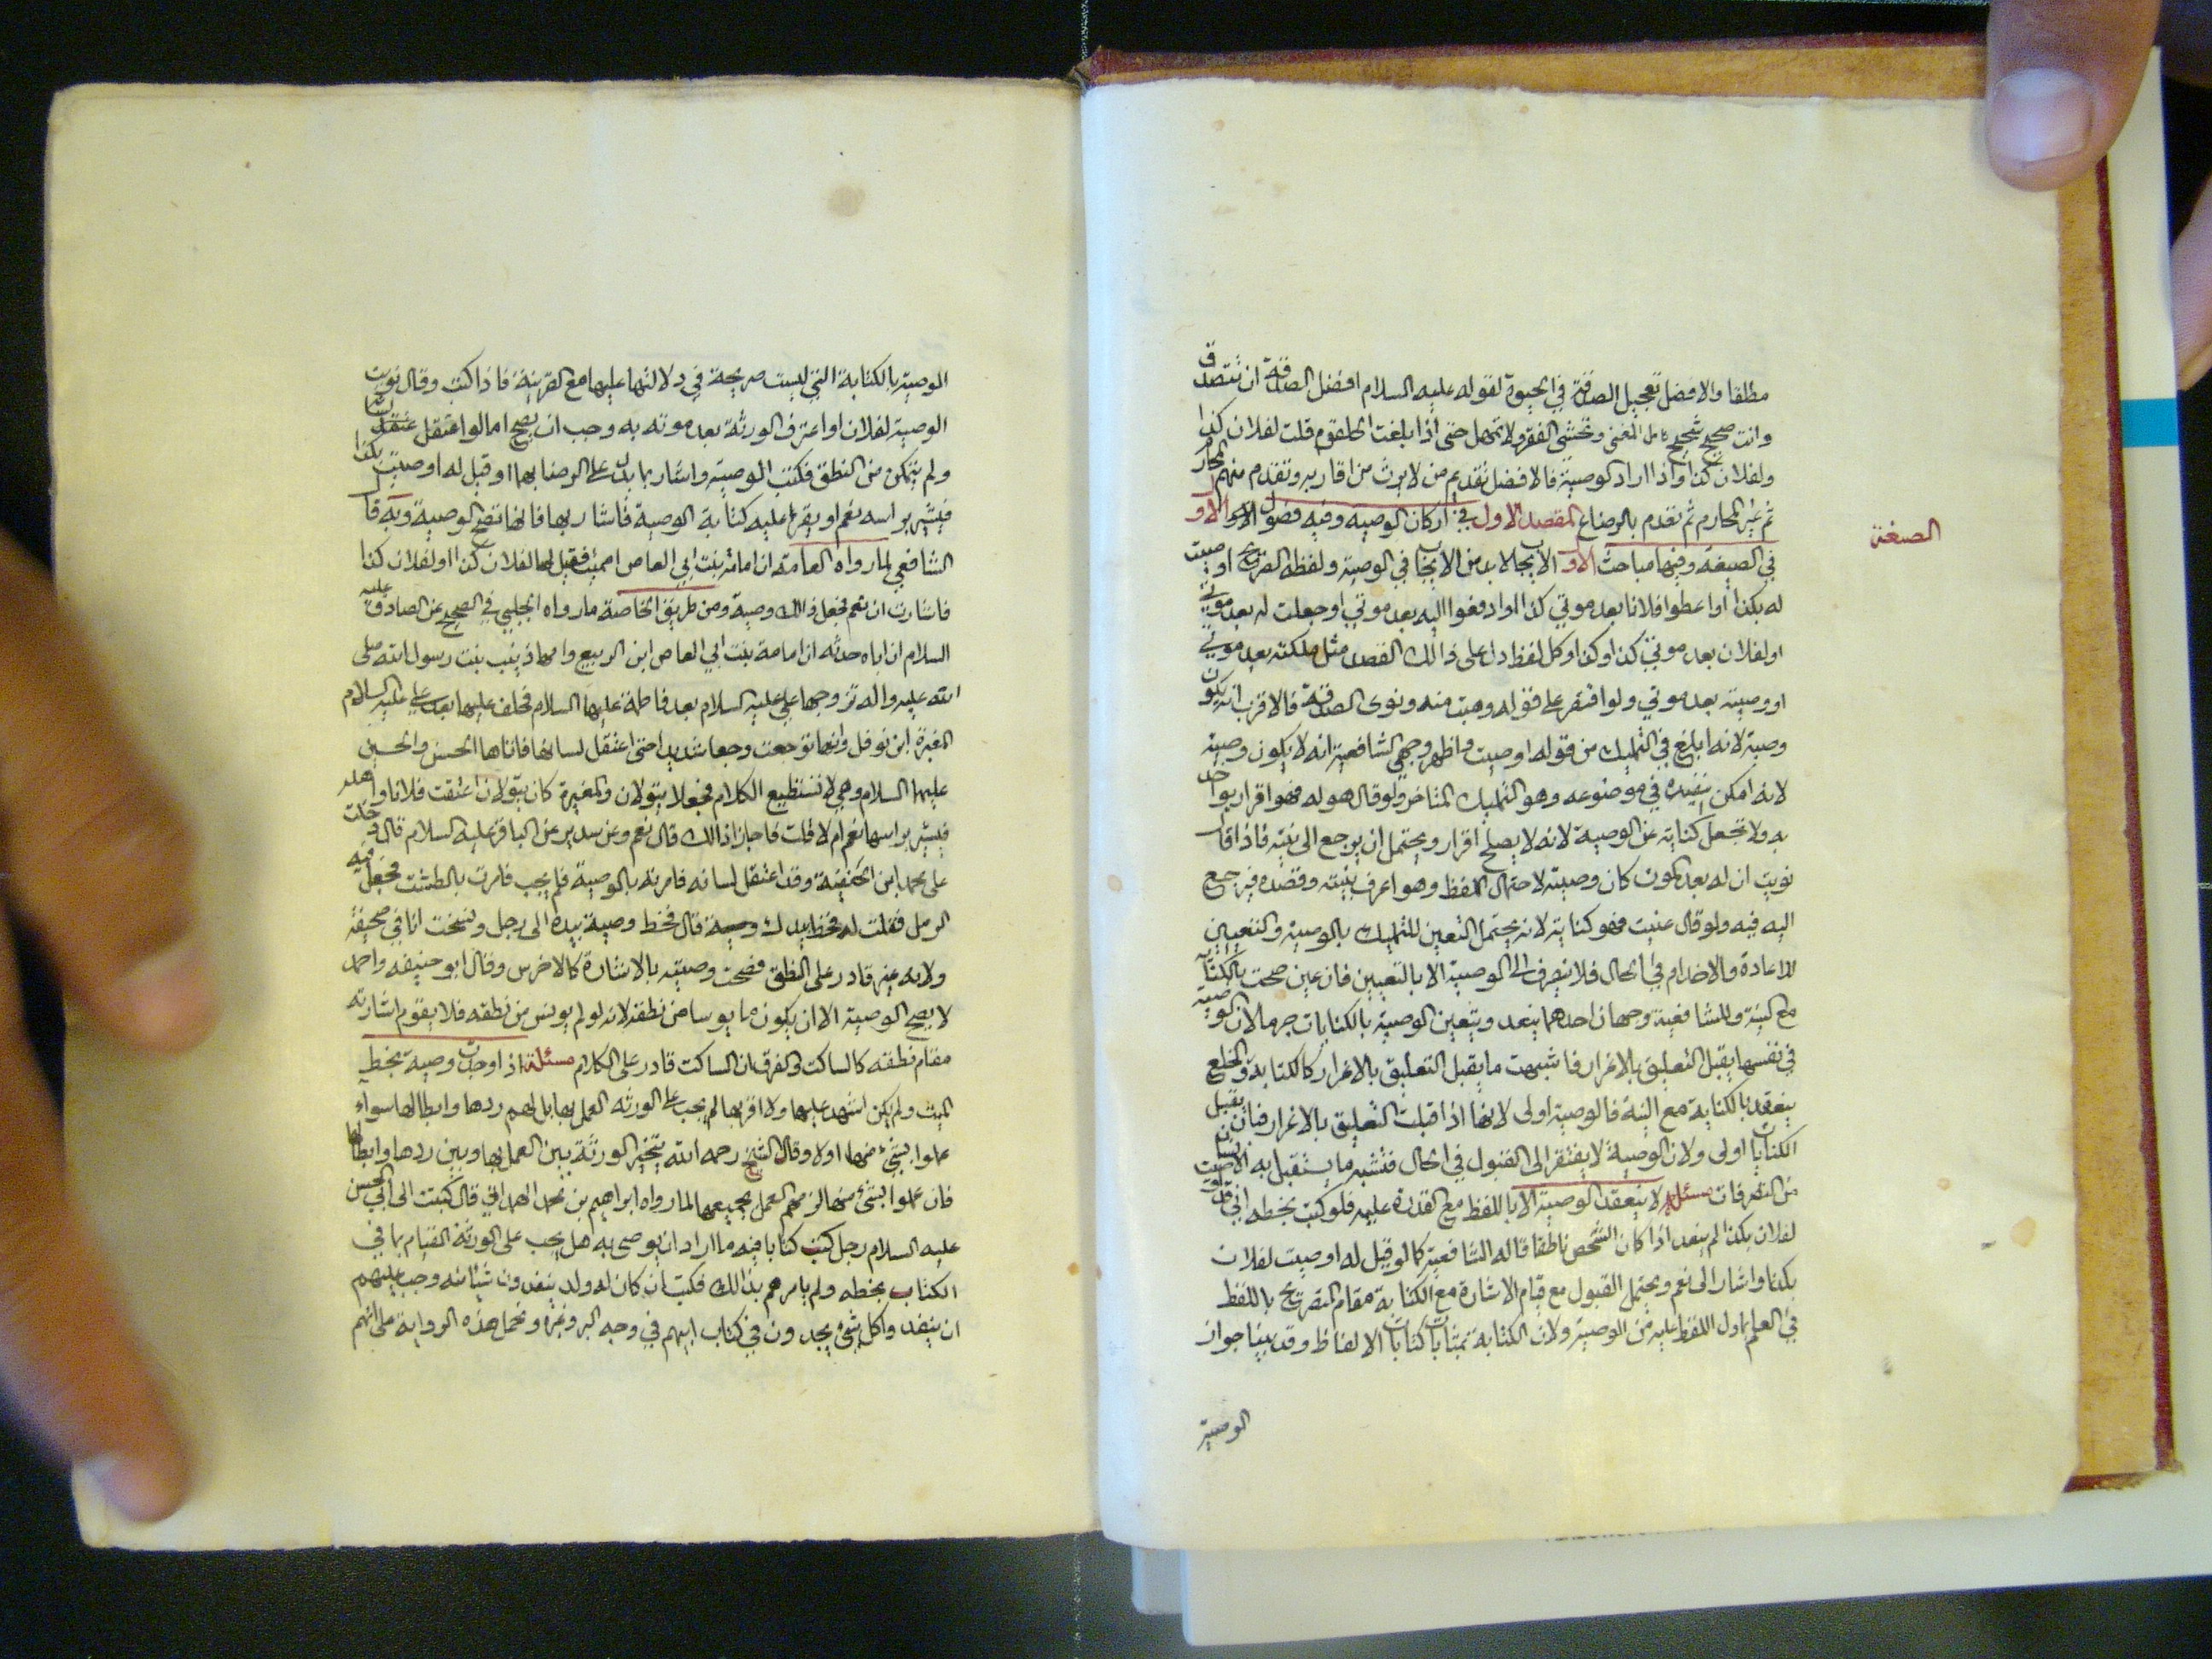 مطلقا والافضل تعجيل الصدقة في الحيوة لقوله عليه السلام افضل الصدقة ان تتصدق
وانت صحيح شحيح تامل الغنى وتخشى الفقر ولا تمهل حتى اذا بلغت الحلقوم قلت لفلان كذا
ولفلان كذا واذا اراد الوصية فالافضل تقديم من لا يرث من اقاربه وتقدم منهم المحارم
ثم غير المحارم ثم تقدم بالرضاع المقصد الاول في اركان الوصية وفيه فصول الاول
الصيغة
في الصيغة وفيها مباحث الاول الايجاب لابد من الايجاب في الوصية ولفظه الصريح اوصيت
له بكذا او اعطوا فلانا بعد موتي كذا او ادفعوا اليه بعد موتي او جعلت له بعد موتي
او لفلان بعد موتي كذا او كذا وكل لفظ دل على ذالك القصد مثل ملكته بعد موتي
او وصيته بعد موتي ولو اقتصر على قوله وهبت منه ونوى الصدقة فالاقرب انه يكون
وصية لانه ابلغ في التمليك من قوله اوصيت واظهر وجهي الشافعية انه لا يكون وصية
لانه امكن تنفيذه في موضوعه وهو التمليك المتاخر ولو قال هو له فهو اقرار يواخذ
به ولا تجعل كناية عن الوصية لانه لا يصلح اقرار ويحتمل ان يرجع الى نيته فاذا قال
نويت ان له بعد الموت كان وصية لاحتمال اللفظ وهو اعرف بنيته وقصده فيرجع
اليه فيه ولو قال عنيت فهو كناية لانه يحتمل التعين للتمليك بالوصية والتعيين
للاعادة والاخدام في الحال فلا ينصرف الى الوصية الا بالتعيين فان عين صحت بالكتابة
مع النية وللشافعية وجهان احدهما ينعقد ويتعين الوصية بالكنايات جزما لان الوصية
في نفسها يقبل التعليق بالاغرار فاشبهت ما يقبل التعليق بالاغرار كالكتابة والخلع
ينعقد بالكناية مع النية فالوصية اولى لانها اذا قبلت التعليق بالاغرار فبان يقبل
الكنايات اولى ولان الوصية لا يفتقر الى القبول في الحال فتشبه ما يستقبل به الانسان
من التصرفات مسئلة لا ينعقد الوصية الا باللفظ مع القدرة عليه فلو كتب بخطه اني قد اوصيت
لفلان بكذا لم ينفذ اذا كان الشخص ناطقا قاله الشافعية كما لو قيل له اوصيت لفلان
بكذا واشار الى نعم ويحتمل القبول مع قيام الاشارة مع الكتابة مقام التصريح باللفظ
في العلم بما دل اللفظ عليه من الوصية ولان الكتابة بمثابات كنايات الالفاظ وقد بينا جواز
الوصية
الوصية بالكتابة التي ليست صريحة في دلالتها عليها مع القرينة فاذا كتب وقال نويت
الوصية لفلان او اعترف الورثة بعد موته به وجب ان يصح اما لو اعتقل لسانه
ولم يتمكن من النطق فكتب الوصية واشار بما يدل على الرضا بها او قيل له اوصيت بكذا
فيشير براسه نعم او يقرا عليه كتابة الوصية فاشار بها فانها تصح الوصية وبه قال
الشافعي لما رواه العامة ان امامة بنت ابي العاص اصمتت فقيل لها لفلان كذا او لفلان كذا
فاشارت ان نعم فجعل ذالك وصية ومن طريق الخاصة ما رواه الحلبي في الصحيح عن الصادق عليه
السلام ان اباه حدثه ان امامة بنت ابي العاص ابن الربيع وامها زينب بنت رسول الله صلى
الله عليه واله تزوجها علي عليه السلام بعد فاطمة عليها السلام فخلف عليها بعد علي عليه السلام
المغيرة ابن نوفل وانها توجعت وجعا شديدا حتى اعتقل لسانها فاتاها الحسن والحسين
عليهما السلام وهي لا تستطيع الكلام فجعلا يقولان والمغيرة كاره يقولان اعتقت فلانا واهله
فيشير براسها نعم ام لا قلت فاجازا ذالك قال نعم وعن سدير عن الباقر عليه السلام قال دخلت
على محمد ابن الحنفية وقد اعتقل لسانه فامرته بالوصية فلم يجب فامرت بالطشت فجعل فيه
الرمل فقلت له فخط بيدك وصية قال فخط وصية بيده الى رجل ونسخت انا في صحيفة
ولانه غير قادر على النطق فصحت وصيته بالاشارة كالاخرس وقال ابو حنيفه واحمد
لا يصح الوصية الا ان يكون مايوسا من نطقه لانه لو لم يويس من نطقه فلا يقوم اشارته
مقام نطقه كالساكت والفرق ان الساكت قادر على الكلام مسئلة اذا وجدت وصية بخط
الميت ولم يكن اشهد عليها ولا اقر بها لم يجب على الورثه العمل بها بل لهم ردها وابطالها سواء
عملوا بشيء منها او لا وقال الشيخ رحمه الله يتخير الورثة بين العمل بها وبين ردها وابطالها
فان عملوا بشيء منها لزمهم العمل بجميعها لما رواه ابراهيم بن محمد الهمداني قال كتبت الى ابي الحسن
عليه السلام رجل كتب كتابا فيه ما اراد ان يوصى به هل يجب على الورثة القيام بما في
الكتاب بخطه ولم يامرهم بذالك فكتب ان كان له ولد ينفذون شيئا منه وجب عليهم
ان ينفذوا كل شيء يجدون في كتاب ابيهم في وجه البر وغيره وتحمل هذه الرواية على انهم